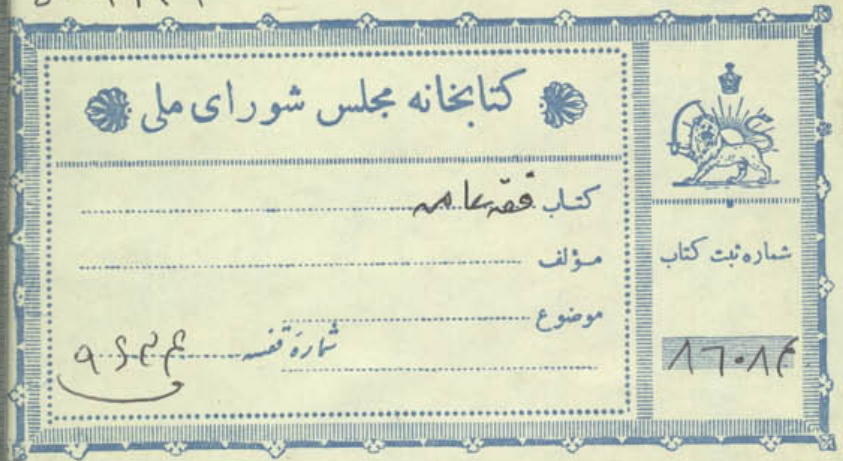 کتابخانه مجلس شورای ملی
کتاب فقه عامه
مؤلف
موضوع
شماره قفسه
شماره ثبت کتاب